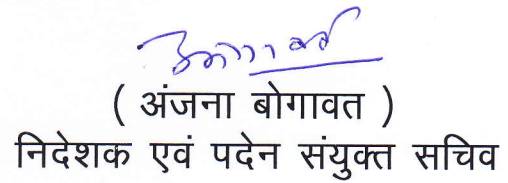 ( अंजना बोगावत )
निदेशक एवं पदेन संयुक्त सचिव